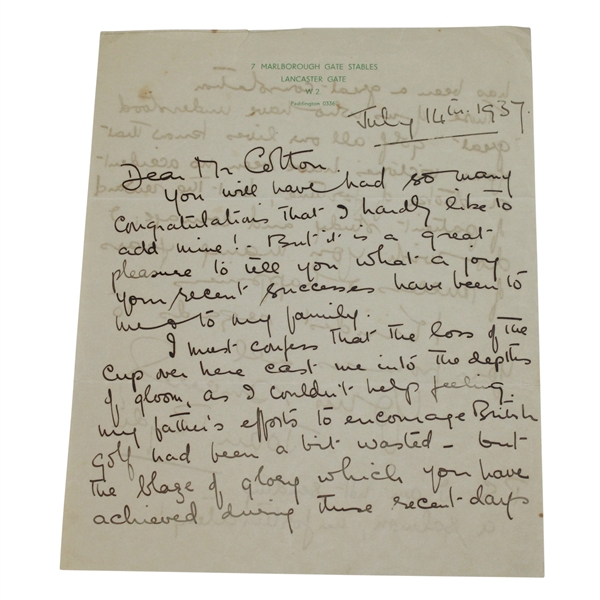 7 MARLBOROUGH GATE STABLES
LANCASTER GATE
W 2
Paddington 0336
July 14th. 1937.
Dear Mr Cotton
You will have had so many
congratulations that I hardly like to
add mine! - But it is a great
pleasure to tell you what a joy
your recent successes have been to
me & to my family.
I must confess that the loss of the
Cup over here cast me into the depths
of gloom, as I couldn't help feeling
my father's efforts to encourage British
golf had been a bit wasted - but
the blaze of glory which you have
achieved during these recent days